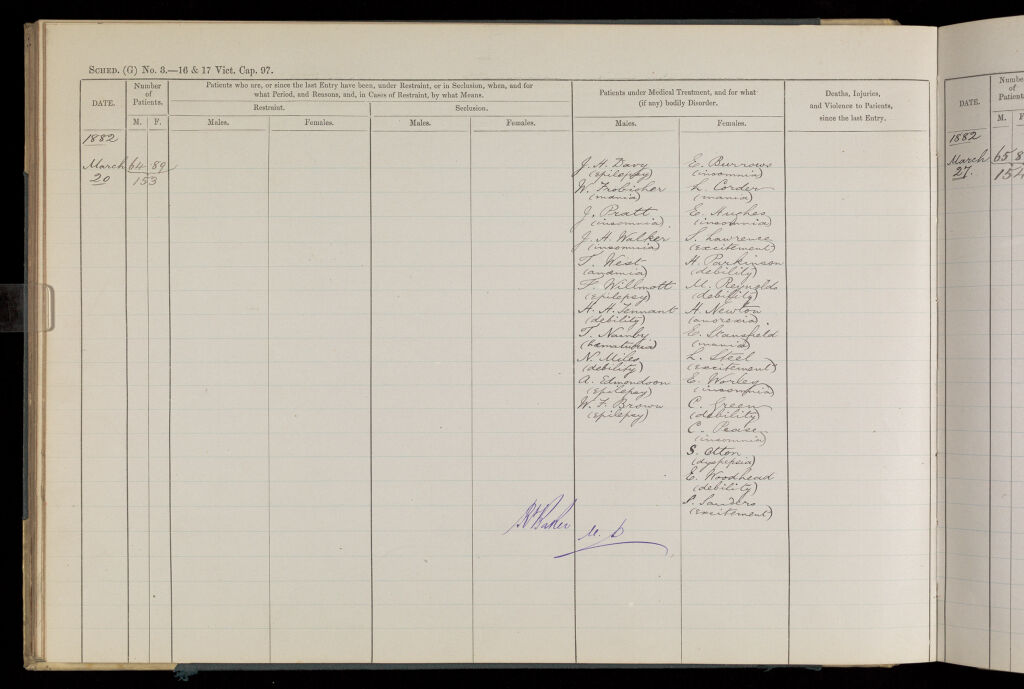 SCHED. (G) No. 3.—16 & 17 Vict. Cap. 97.
DATE.
Number
of
Patients.
M. F.
Patients who are, or since the last Entry have been, under Restraint, or in Seclusion, when, and for
what Period, and Reasons, and, in Cases of Restraint, by what Means.
Restraint.
Seclusion.
Males.
Females.
Males.
Females.
Patients under Medical Treatment, and for what
(if any) bodily Disorder.
Males.
Females.
Deaths, Injuries,
and Violence to Patients,
since the last Entry.
1882
March 64 89
20 153
J. H. Davy
(epilepsy)
W. Frobisher
(mania)
J. Pratt
(insomnia)
J. H. Walker
(insomnia)
T. West
(anæmia)
F. Willmott
(epilepsy)
H. H. Tennant
(debility)
T. Nainby
(hæmaturia)
N. Miles
(debility)
A. Edmondson
(epilepsy)
W. F. Brown
(epilepsy)
E. Burrows
(insomnia)
L. Corder
(mania)
E. Hughes
(insomnia)
S. Lawrence
(excitement)
H. Parkinson
(debility)
M. Reynolds
(debility)
H. Newton
(anorexia)
E. Stansfield
(mania)
L. Steel
(excitement)
E. Worley
(insomnia)
C. Green
(debility)
C. Pease
(insomnia)
S. Otton
(dyspepsia)
E. Woodhead
(debility)
S. Sanders
(excitement)
Baker M.D
DATE.
Numbe
of
Patient
M. F
1882
March 65 8
27. 154